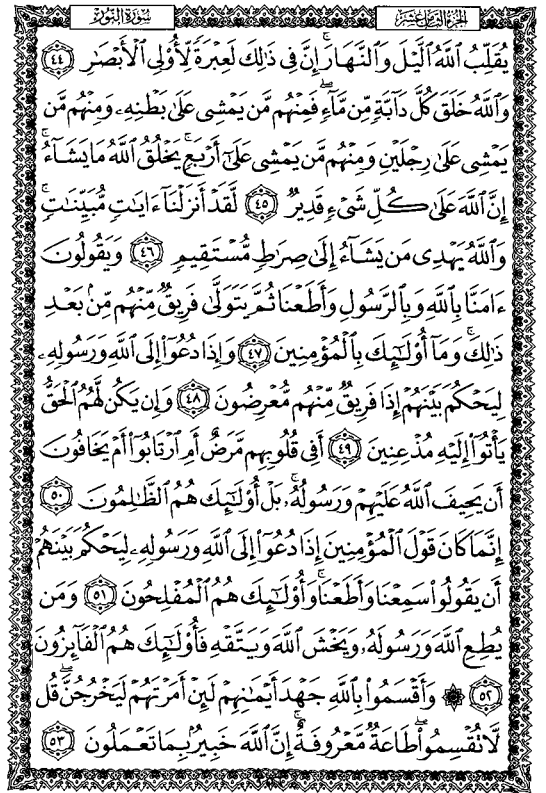 سُورَةُ النُّورِ الجُزْءُ الثَّامِنُ عَشَرَ
يُقَلِّبُ ٱللَّهُ ٱلَّيْلَ وَٱلنَّهَارَۚ إِنَّ فِى ذَٰلِكَ لَعِبْرَةً لِّأُو۟لِى ٱلْأَبْصَٰرِ ٤٤
وَٱللَّهُ خَلَقَ كُلَّ دَآبَّةٍ مِّن مَّآءٍۖ فَمِنْهُم مَّن يَمْشِى عَلَىٰ بَطْنِهِۦ وَمِنْهُم مَّن
يَمْشِى عَلَىٰ رِجْلَيْنِ وَمِنْهُم مَّن يَمْشِى عَلَىٰٓ أَرْبَعٍۚ يَخْلُقُ ٱللَّهُ مَا يَشَآءُۚ
إِنَّ ٱللَّهَ عَلَىٰ كُلِّ شَىْءٍ قَدِيرٌ ٤٥ لَّقَدْ أَنزَلْنَآ ءَايَٰتٍ مُّبَيِّنَٰتٍۚ
وَٱللَّهُ يَهْدِى مَن يَشَآءُ إِلَىٰ صِرَٰطٍ مُّسْتَقِيمٍ ٤٦ وَيَقُولُونَ
ءَامَنَّا بِٱللَّهِ وَبِٱلرَّسُولِ وَأَطَعْنَا ثُمَّ يَتَوَلَّىٰ فَرِيقٌ مِّنْهُم مِّنۢ بَعْدِ
ذَٰلِكَۚ وَمَآ أُو۟لَٰٓئِكَ بِٱلْمُؤْمِنِينَ ٤٧ وَإِذَا دُعُوٓا۟ إِلَى ٱللَّهِ وَرَسُولِهِۦ
لِيَحْكُمَ بَيْنَهُمْ إِذَا فَرِيقٌ مِّنْهُم مُّعْرِضُونَ ٤٨ وَإِن يَكُن لَّهُمُ ٱلْحَقُّ
يَأْتُوٓا۟ إِلَيْهِ مُذْعِنِينَ ٤٩ أَفِى قُلُوبِهِم مَّرَضٌ أَمِ ٱرْتَابُوٓا۟ أَمْ يَخَافُونَ
أَن يَحِيفَ ٱللَّهُ عَلَيْهِمْ وَرَسُولُهُۥۚ بَلْ أُو۟لَٰٓئِكَ هُمُ ٱلظَّٰلِمُونَ ٥٠
إِنَّمَا كَانَ قَوْلَ ٱلْمُؤْمِنِينَ إِذَا دُعُوٓا۟ إِلَى ٱللَّهِ وَرَسُولِهِۦ لِيَحْكُمَ بَيْنَهُمْ
أَن يَقُولُوا۟ سَمِعْنَا وَأَطَعْنَاۚ وَأُو۟لَٰٓئِكَ هُمُ ٱلْمُفْلِحُونَ ٥١ وَمَن
يُطِعِ ٱللَّهَ وَرَسُولَهُۥ وَيَخْشَ ٱللَّهَ وَيَتَّقْهِ فَأُو۟لَٰٓئِكَ هُمُ ٱلْفَآئِزُونَ
٥٢ ۞ وَأَقْسَمُوا۟ بِٱللَّهِ جَهْدَ أَيْمَٰنِهِمْ لَئِنْ أَمَرْتَهُمْ لَيَخْرُجُنَّۖ قُل
لَّا تُقْسِمُوا۟ۖ طَاعَةٌ مَّعْرُوفَةٌۚ إِنَّ ٱللَّهَ خَبِيرٌۢ بِمَا تَعْمَلُونَ ٥٣